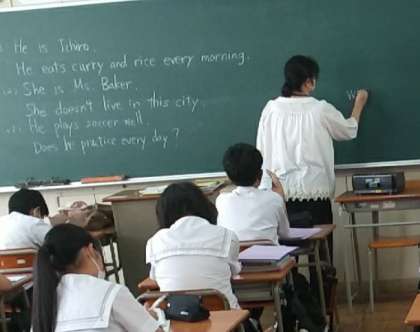 He is Ichiro.
He eats curry and rice every morning.
She is Ms. Baker.
She doesn't live in this city.
He plays soccer well.
Does he practice every day?
W